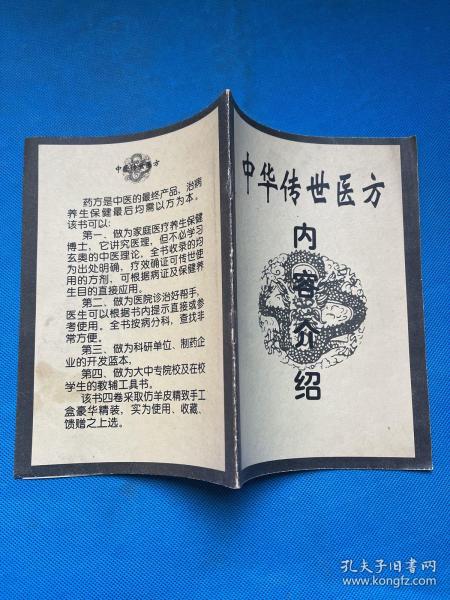 中华传世医方
药方是中医的最终产品，治病
养生保健最后均需以方为本。
该书可以：
第一、做为家庭医疗养生保健
博士，它讲究医理，但不必学习
玄奥的中医理论，全书收录的均
为出处明确，疗效确证可传世使
用的方剂，可根据病证及保健养
生目的直接应用。
第二、做为医院诊治好帮手，
医生可以根据书内提示直接或参
考使用。全书按病分科，查找非
常方便。
第三、做为科研单位、制药企
业的开发蓝本，
第四、做为大中专院校及在校
学生的教辅工具书。
该书四卷采取仿羊皮精致手工
盒豪华精装，实为使用、收藏、
馈赠之上选。
中华传世医方
内容介绍
孔夫子旧书网
www.kongfz.com